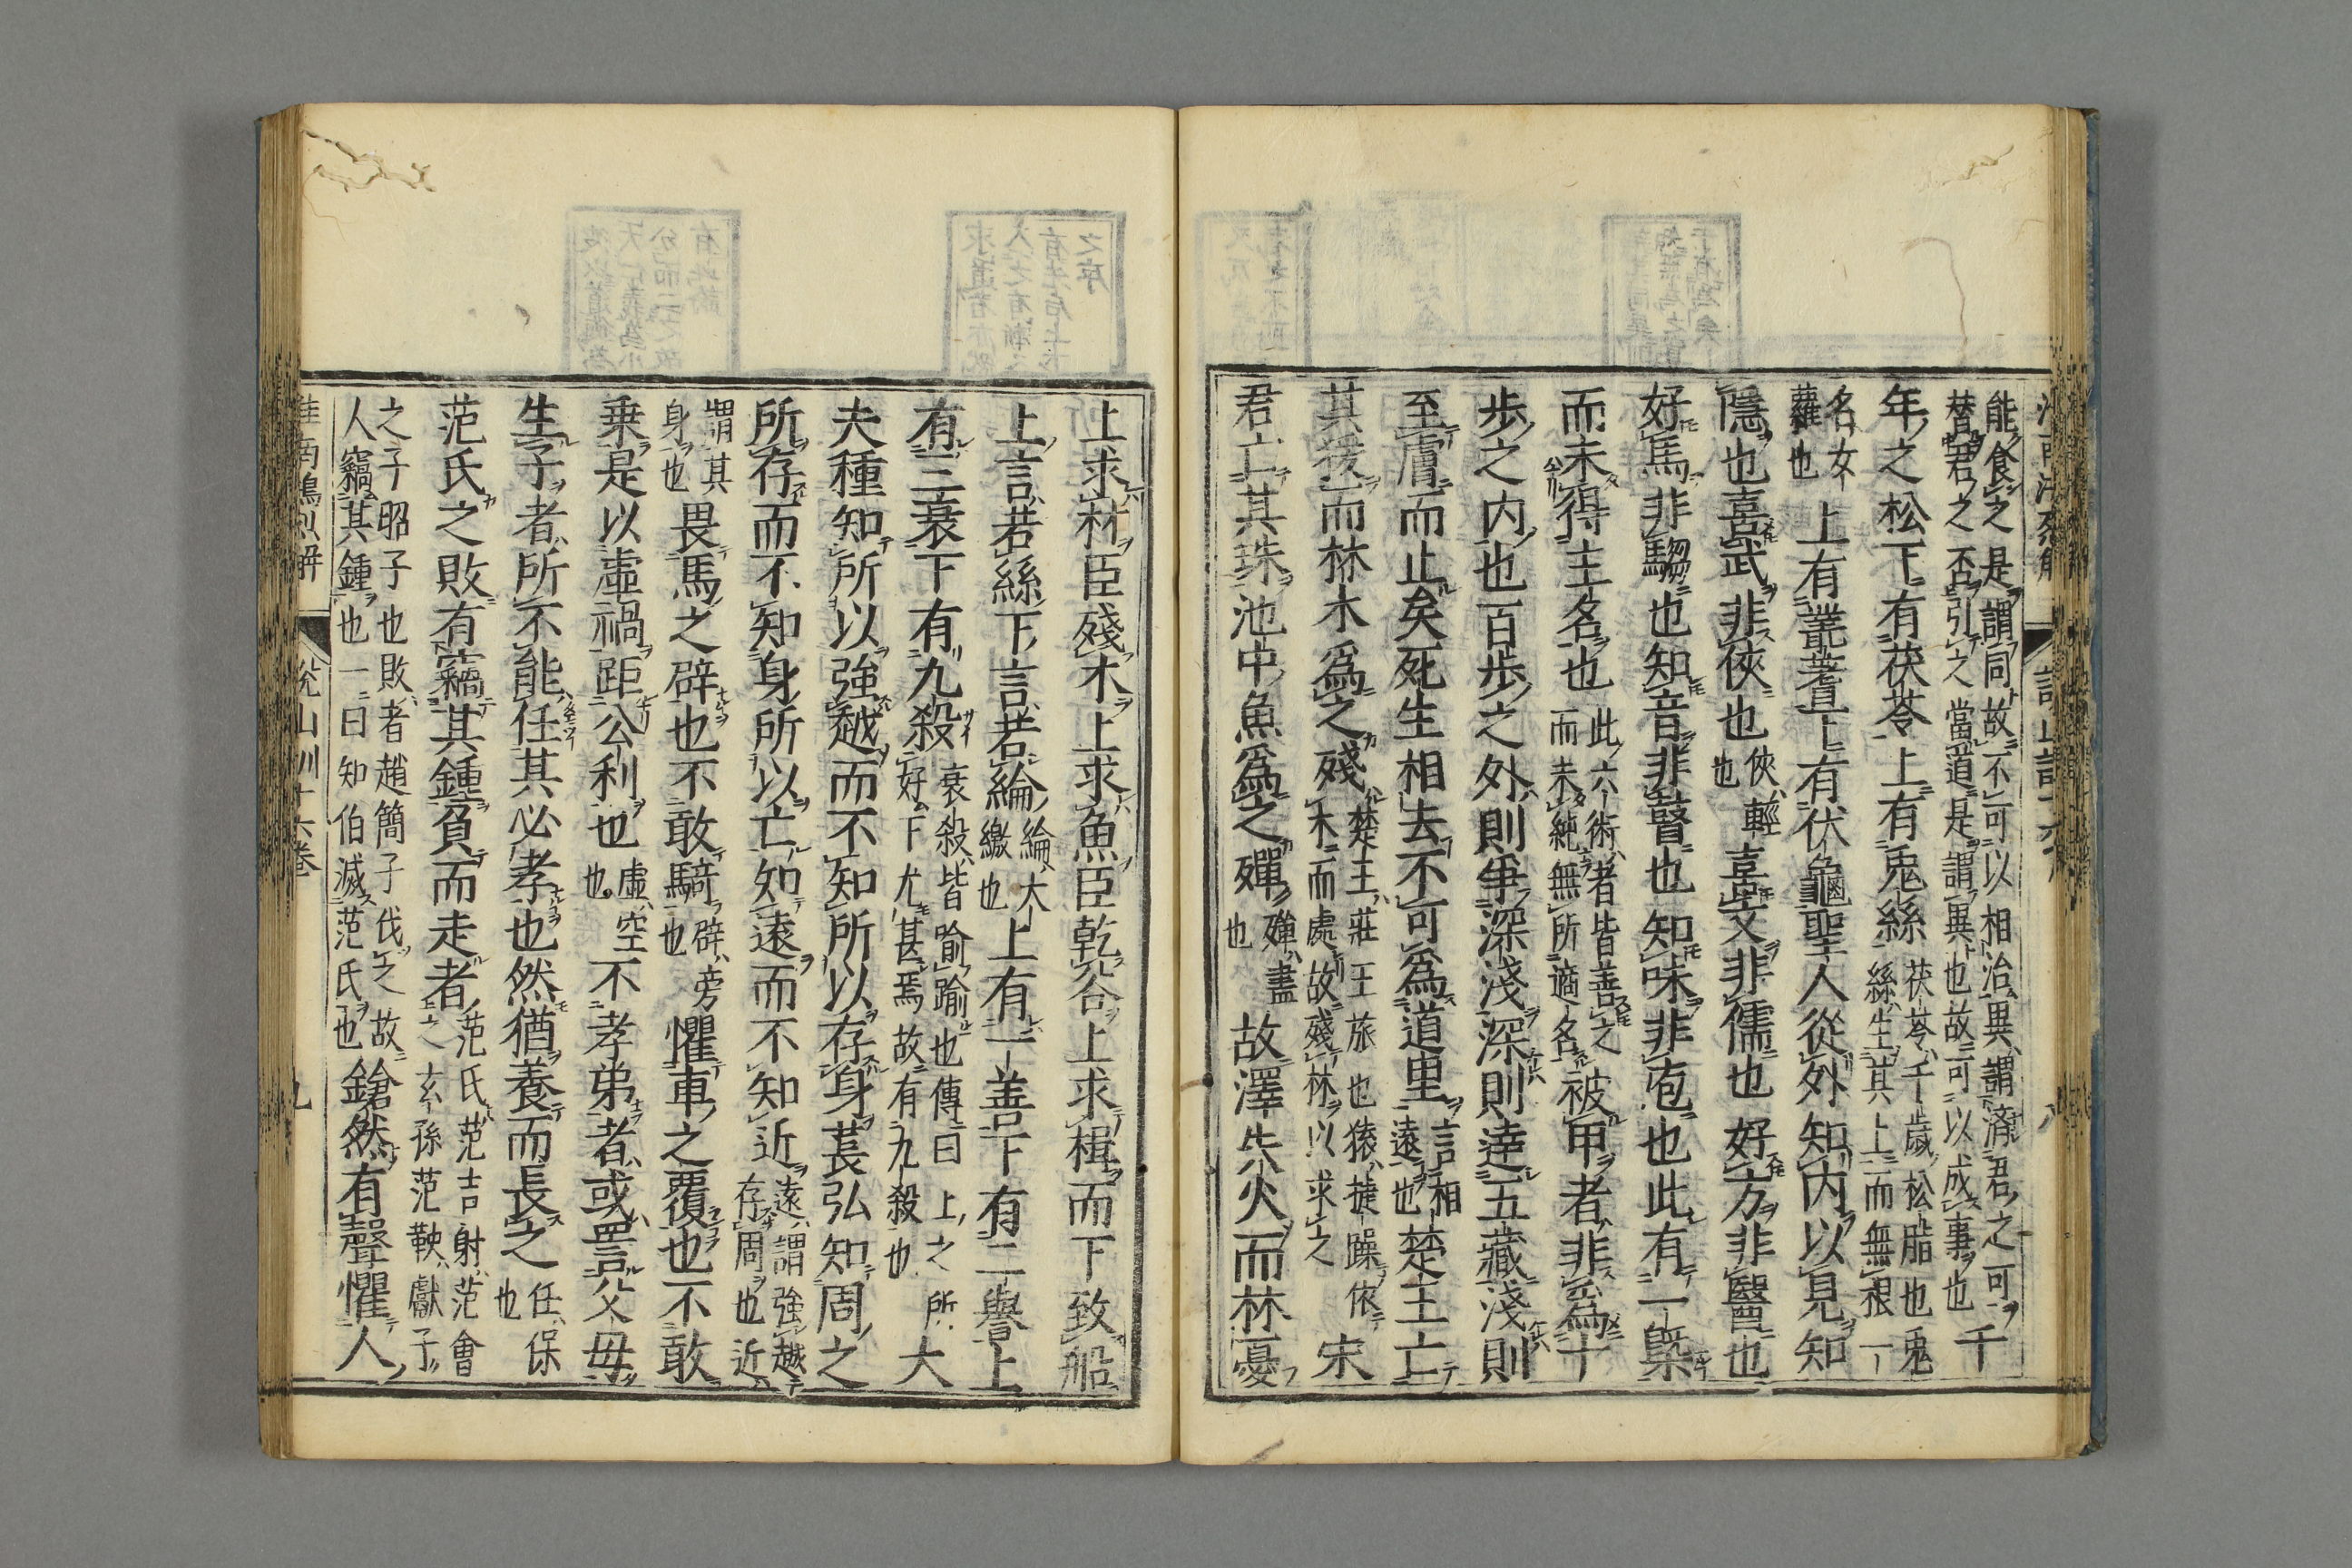 能食之是謂同故不可以相治異謂濟君之可
替君之否引之當道是謂異也故可以成事也
千
年之松下有茯苓上有兎絲
茯苓千歲松脂也兎
絲生其上而無根一
名女
蘿也
上有叢蓍下有伏龜聖人從外知內以見知
隱也喜武非俠也
俠輕
也
喜文非儒也好方非醫也
好馬非騶也知音非瞽也知味非庖也此有一槩
而未得主名也
此六術者皆善之
而未純無所適名
被甲者非爲十
步之內也百步之外則爭深淺深則達五藏淺則
至膚而止矣死生相去不可爲道里
言相
遠也
楚王亡
其猨而林木爲之殘
楚王莊王旅也猿捷躁依
木而處故殘林以求之
宋
君亡其珠池中魚爲之殫
殫盡
也
故澤失火而林憂
上求材臣殘木上求魚臣乾谷上求楫而下致船
上言若絲下言若綸
綸大
繳也
上有一善下有二譽上
有三衰下有九殺
衰殺皆喻踰也傳曰上之所
好下尤甚焉故有九殺也
大
夫種知所以強越而不知所以存身萇弘知周之
所存而不知身所以亡知遠而不知近
遠謂強越
存周也近
謂其
身也
畏馬之辟也不敢騎
辟旁
也
懼車之覆也不敢
乗是以虛禍距公利也
虛空
也
不孝弟者或詈父母
生子者所不能任其必孝也然猶養而長之
任保
也
范氏之敗有竊其鍾負而走者
范氏范吉射范會
之玄孫范鞅獻子
之子昭子也敗者趙簡子伐之故
人竊其鍾也一曰知伯滅范氏也
鎗然有聲懼人
淮南鴻烈解
說山訓十六卷
九